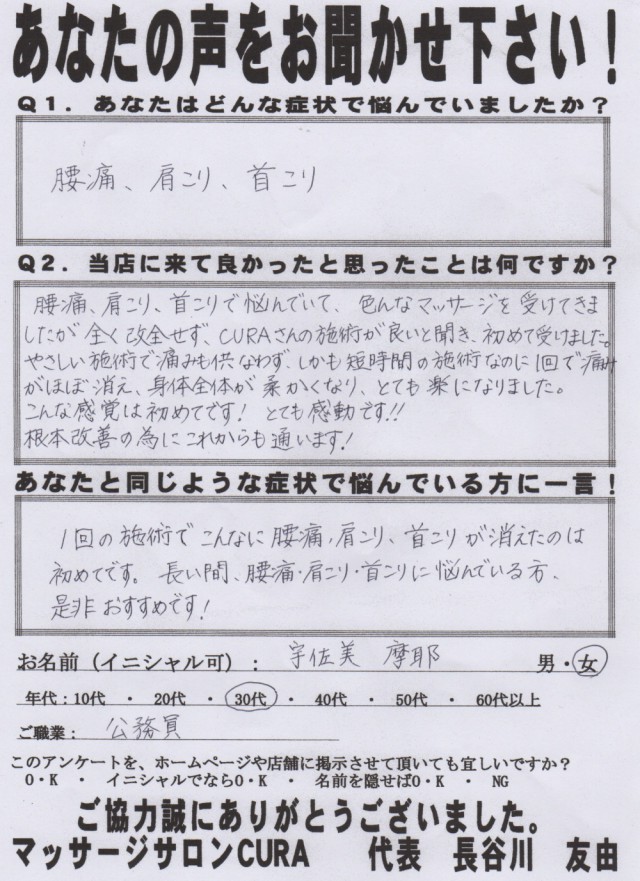 あなたの声をお聞かせ下さい！
Q1．あなたはどんな症状で悩んでいましたか？
腰痛、肩こり、首こり
Q2．当店に来て良かったと思ったことは何ですか？
腰痛、肩こり、首こりで悩んでいて、色んなマッサージを受けてきま
したが全く改全せず、CURAさんの施術が良いと聞き、初めて受けました。
やさしい施術で痛みも供なわず、しかも短時間の施術なのに1回で痛み
がほぼ消え、身体全体が柔かくなり、とても楽になりました。
こんな感覚は初めてです！ とても感動です!!
根本改善の為にこれからも通います！
あなたと同じような症状で悩んでいる方に一言！
1回の施術でこんなに腰痛、肩こり、首こりが消えたのは
初めてです。長い間、腰痛・肩こり・首こりに悩んでいる方、
是非おすすめです！
お名前（イニシャル可）： 宇佐美 摩耶 男・女
年代：10代 ・ 20代 ・ 30代 ・ 40代 ・ 50代 ・ 60代以上
ご職業： 公務員
このアンケートを、ホームページや店舗に掲示させて頂いても宜しいですか？
O・K ・ イニシャルでならO・K ・ 名前を隠せばO・K ・ NG
ご協力誠にありがとうございました。
マッサージサロンCURA 代表 長谷川 友由